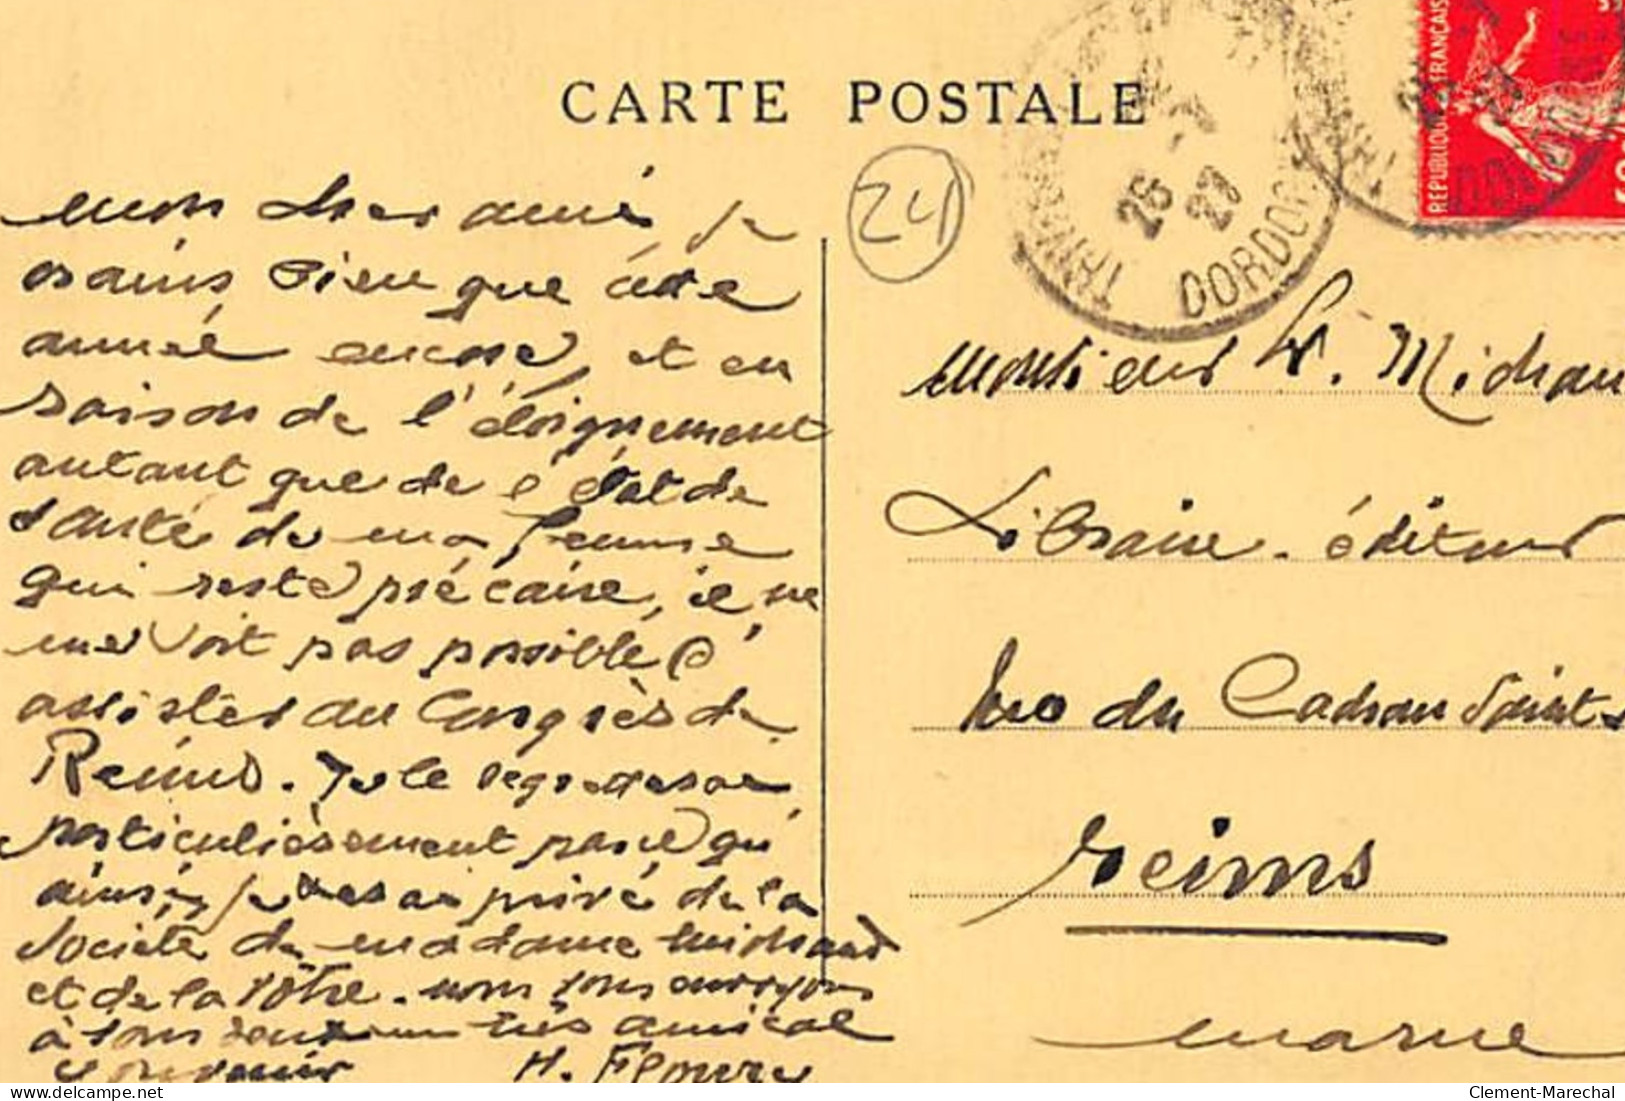 CARTE POSTALE
24
TAYAC
DORDOGNE
26 - 7
27
REPUBLIQUE FRANÇAISE
mon cher ami je
crains bien que cette
année encore, et en
raison de l'éloignement
autant que de l'état de
santé de ma femme
qui reste précaire, il ne
me soit pas possible d'
assister au Congrès de
Reims. Je le regretterai
particulièrement parce qu'
ainsi, je serai privé de la
Société de madame michaud
et de la vôtre. nous vous envoyons
à tous deux un très amical
souvenir H. Floury
Monsieur L. Michaud
Libraire-éditeur
rue du Cadran Saint-
Reims
marne
Clement-Marechal